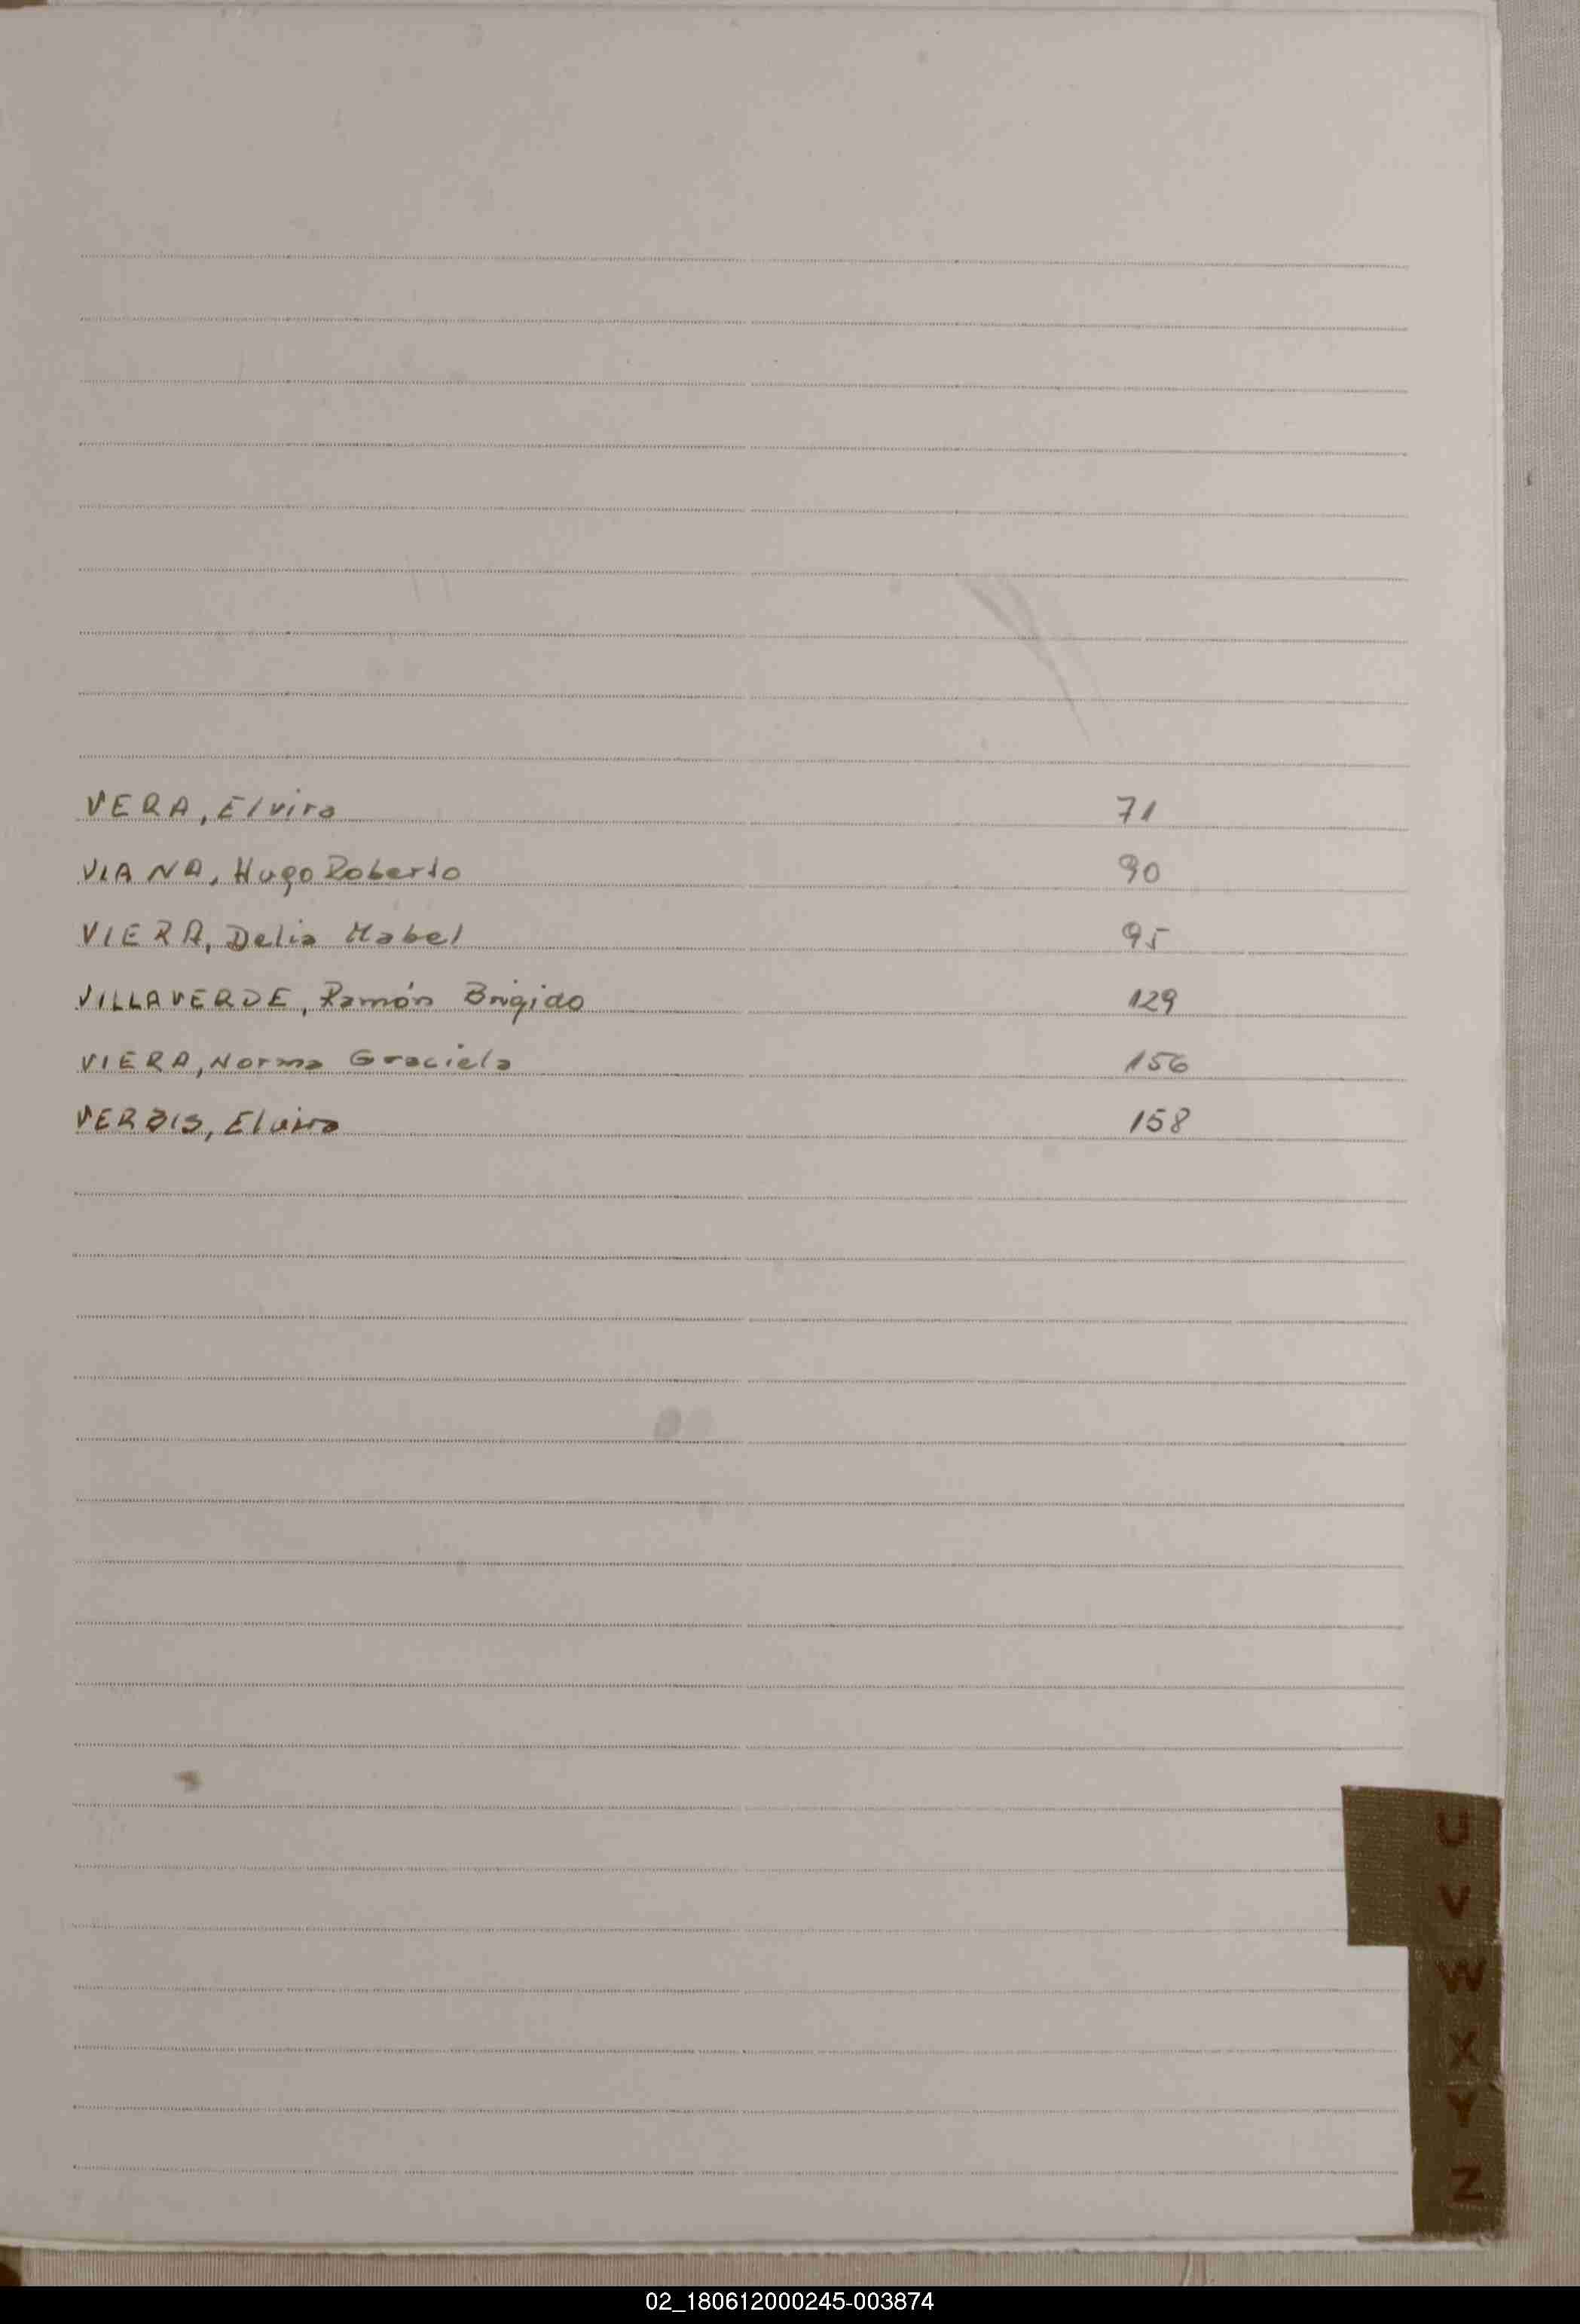 VERA, Elvira 71
VIANA, Hugo Roberto 90
VIERA, Delia Mabel 95
VILLAVERDE, Ramón Brígido 129
VIERA, Norma Graciela 156
Elvira 158
U
V
W
X
Y
Z
02_180612000245-003874